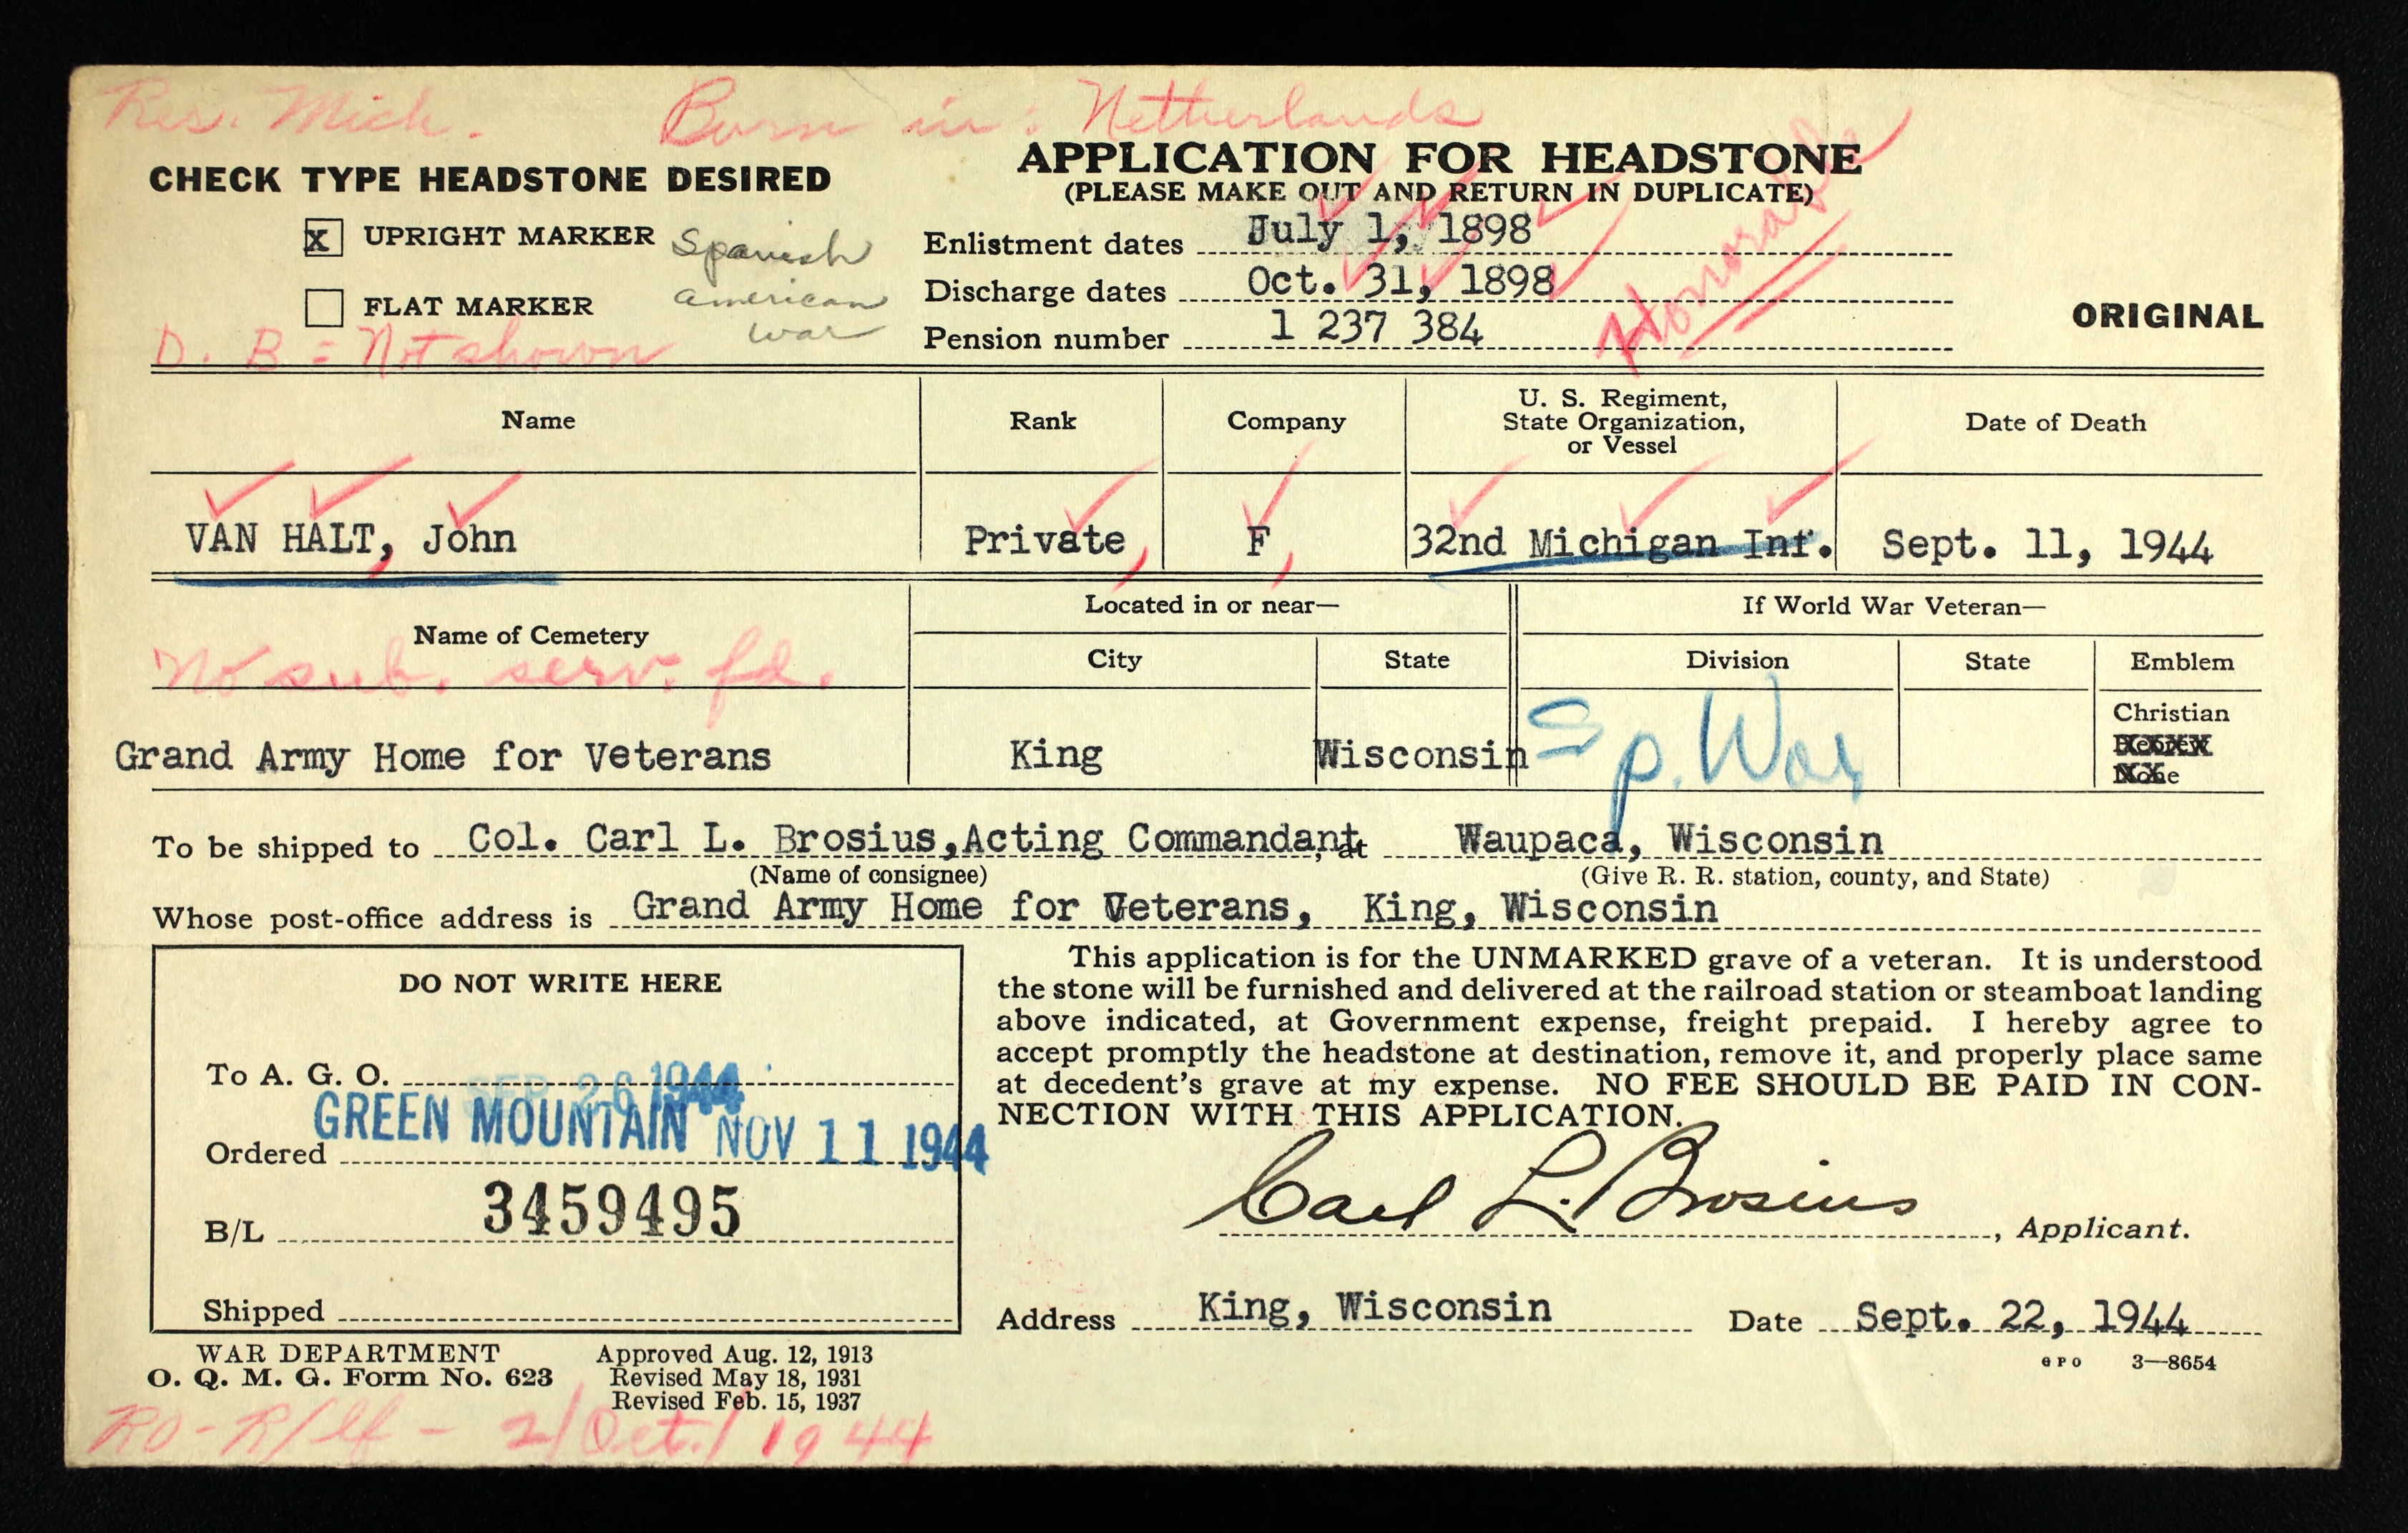 Res. Mich.
Born in: Netherlands
CHECK TYPE HEADSTONE DESIRED
x UPRIGHT MARKER
FLAT MARKER
Spanish
american
war
D. B = Not shown
APPLICATION FOR HEADSTONE
(PLEASE MAKE OUT AND RETURN IN DUPLICATE)
Enlistment dates July 1, 1898
Discharge dates Oct. 31, 1898
Pension number 1 237 384
Honorable
ORIGINAL
Name Rank Company U. S. Regiment,
State Organization,
or Vessel
Date of Death
VAN HALT, John Private, F, 32nd Michigan Inf. Sept. 11, 1944
Name of Cemetery
Located in or near—
If World War Veteran—
City State Division State Emblem
No sub. serv. fd.
Grand Army Home for Veterans King Wisconsin Sp. War
Christian
Hebrew
None
To be shipped to Col. Carl L. Brosius,Acting Commandant, at Waupaca, Wisconsin
(Name of consignee) (Give R. R. station, county, and State)
Whose post-office address is Grand Army Home for Veterans, King, Wisconsin
DO NOT WRITE HERE
To A. G. O. SEP 26 1944
GREEN MOUNTAIN
Ordered NOV 11 1944
B/L 3459495
Shipped
This application is for the UNMARKED grave of a veteran. It is understood
the stone will be furnished and delivered at the railroad station or steamboat landing
above indicated, at Government expense, freight prepaid. I hereby agree to
accept promptly the headstone at destination, remove it, and properly place same
at decedent's grave at my expense. NO FEE SHOULD BE PAID IN CON-
NECTION WITH THIS APPLICATION.
Carl L. Brosius, Applicant.
Address King, Wisconsin Date Sept. 22, 1944
GPO 3—8654
WAR DEPARTMENT
O. Q. M. G. Form No. 623
Approved Aug. 12, 1913
Revised May 18, 1931
Revised Feb. 15, 1937
2/Oct./1944